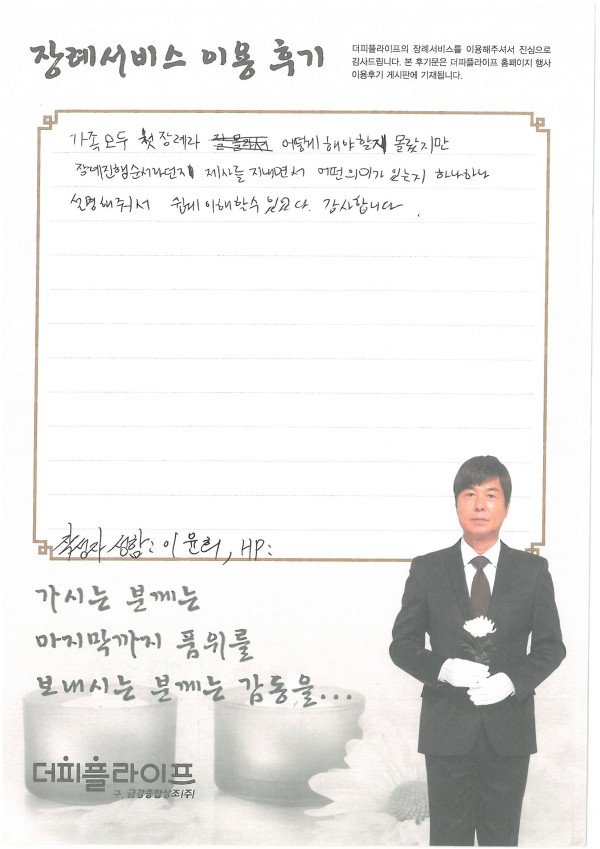 장례서비스 이용 후기
더피플라이프의 장례서비스를 이용해주셔서 진심으로
감사드립니다. 본 후기문은 더피플라이프 홈페이지 행사
이용후기 게시판에 기재됩니다.
가족모두 첫 장례라 잘몰라서 어떻게 해야할지 몰랐지만
장례진행순서라던지 제사를 지내면서 어떤의미가 있는지 하나하나
설명해줘서 쉽게 이해할수 있었다. 감사합니다.
작성자 성함: 이윤희, HP:
가시는 분께는
마지막까지 품위를
보내시는 분께는 감동을...
더피플라이프
구. 금강종합상조(주)